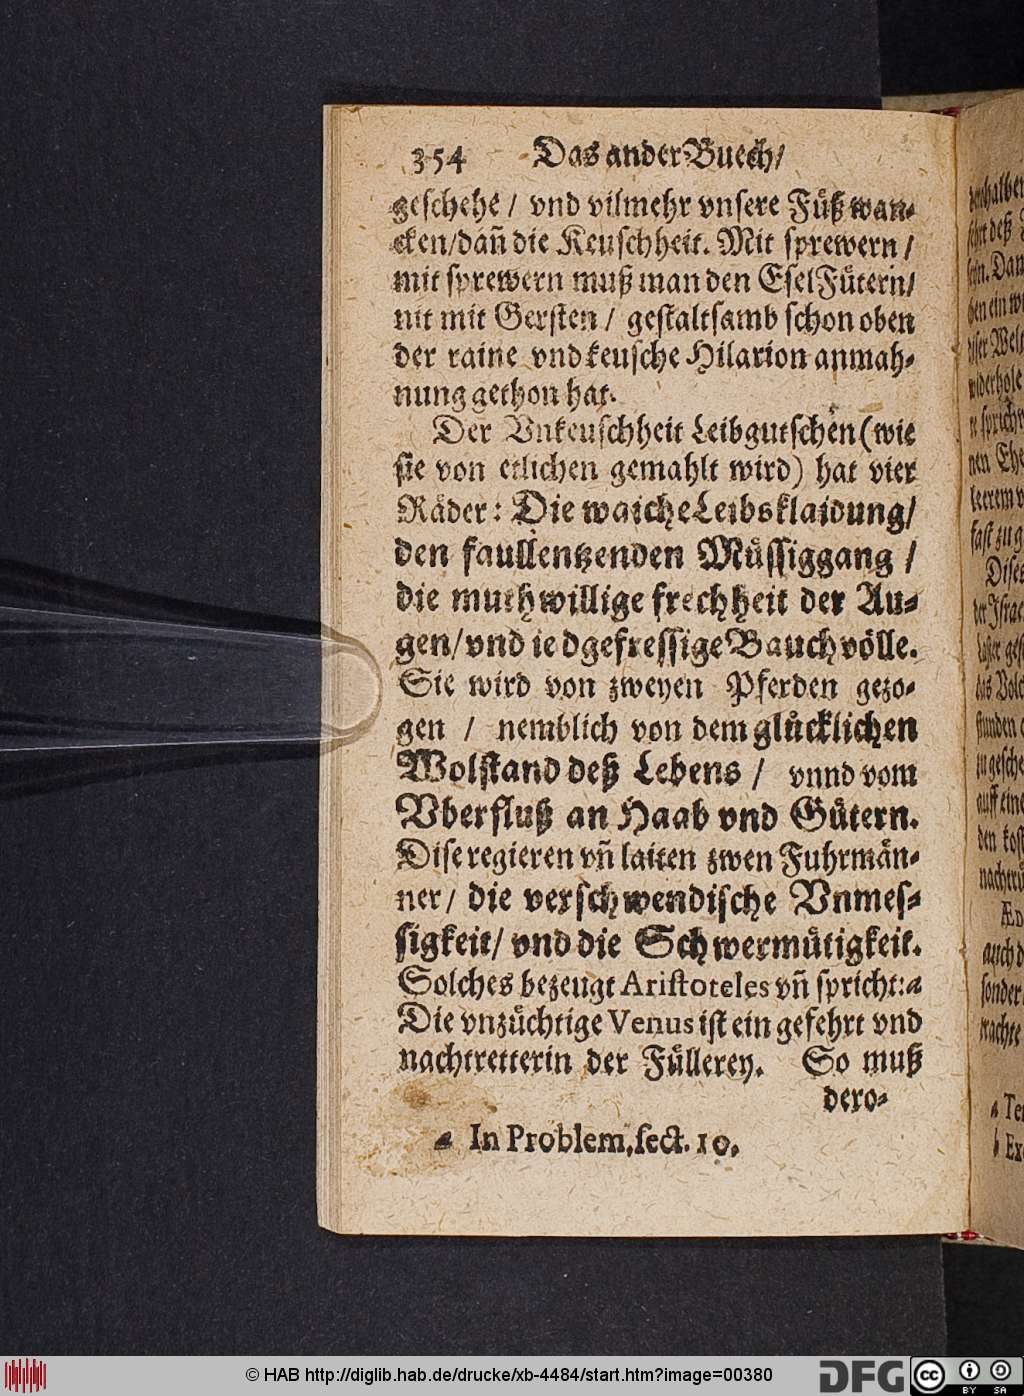 354 Das ander Buech/
geschehe / vnd vilmehr vnsere Füß wan-
cken/dañ die Keuschheit. Mit sprewern /
mit sprewern muß man den Esel Fütern/
nit mit Gersten / gestaltsamb schon oben
der raine vnd keusche Hilarion anmah-
nung gethon hat.
Der Vnkeuschheit Leibgutschen (wie
sie von etlichen gemahlt wird) hat vier
Räder: Die waiche Leibsklaidung/
den faullentzenden Müssiggang /
die muthwillige frechheit der Au-
gen/vnd ie dgefressige Bauchvölle.
Sie wird von zweyen Pferden gezo-
gen / nemblich von dem glücklichen
Wolstand deß Lebens / vnnd vom
Vberfluß an Haab vnd Gütern.
Dise regieren vñ laiten zwen Fuhrmän-
ner/ die verschwendische Vnmes-
sigkeit/ vnd die Schwermütigkeit.
Solches bezeugt Aristoteles vñ spricht: a
Die vnzüchtige Venus ist ein gefehrt vnd
nachtretterin der Füllerey. So muß
dero-
a In Problem. sect. 10.
© HAB http://diglib.hab.de/drucke/xb-4484/start.htm?image=00380
DFG
cc BY SA